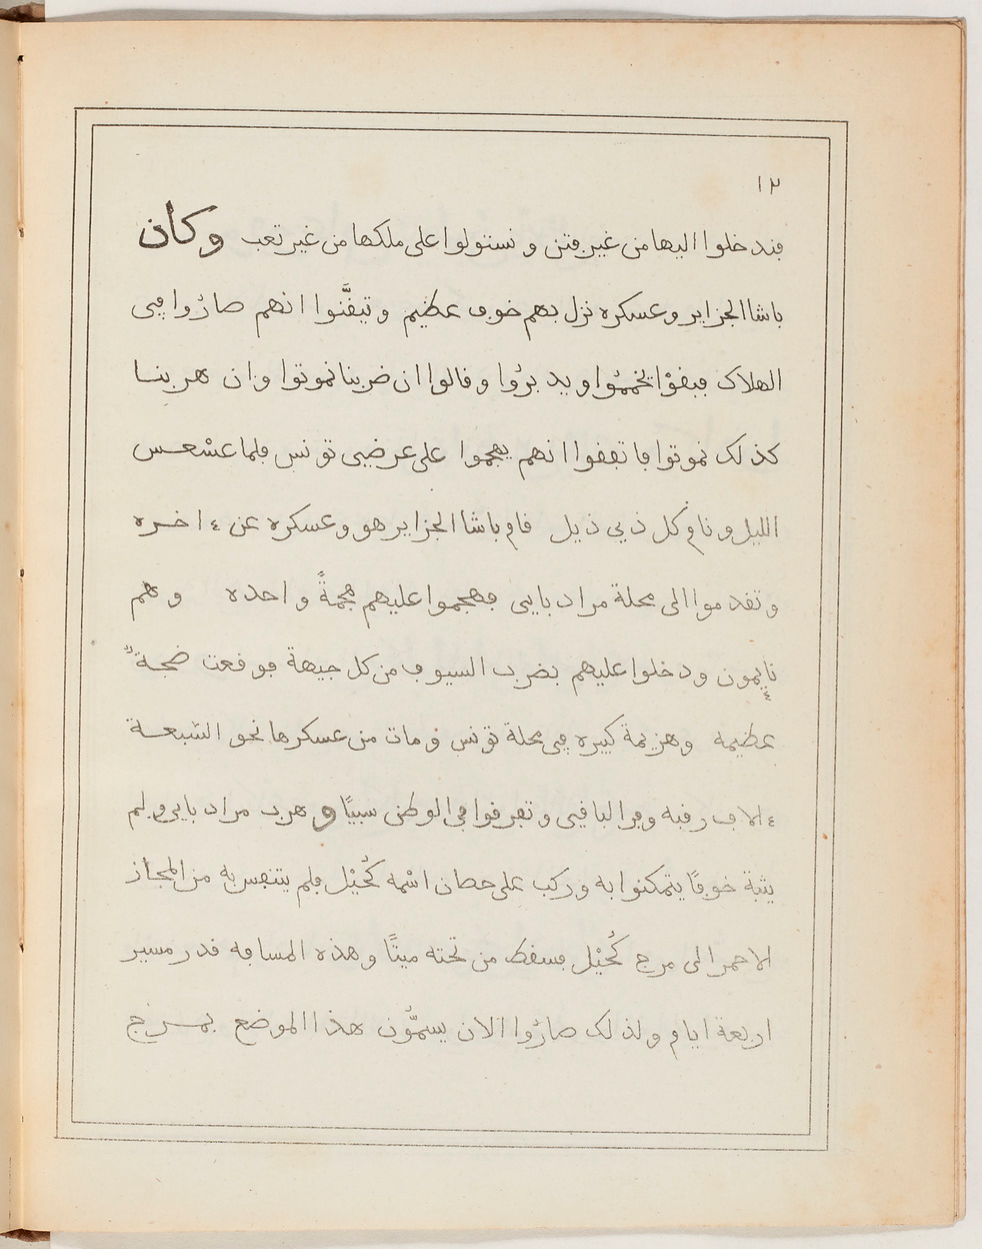 ١٢
فندخلوا اليها من غير فتن ونستولوا على ملكها من غير تعب وكان
باشا الجزاير وعسكره نزل بهم خوف عظيم وتيقَّنوا انهم صارُوا في
الهلاك فبقوْا يخممُوا ويدبرُوا وقالوا ان ضربنا نموتوا وان هربنا
كذلك نموتوا فاتفقوا انهم يهجموا على عرضي تونس فلما عسْعس
الليل ونام كل ذي ذيل قام باشا الجزاير هو وعسكره عن ءاخره
وتقدموا الى محلة مراد بايي فهجموا عليهم هجمةً واحده وهم
نايمون ودخلوا عليهم بضرب السيوف من كل جيهة فوقعت ضجةٌ
عظيمه وهزيمة كبيره في محلة تونس ومات من عسكرها نحو السّبعة
ءالاف رقبه وفر الباقيي وتفرقوا في الوطن سبيًا وهرب مراد بايي ولم
يثبة خوفًا يتمكنوا به وركب على حصان اسْمه كُحيْل فلم يتنفس به من المجاز
الاحمر الى مرج كُحيْل فسقط من تحته ميتًا وهذه المسافه قدر مسير
اربعة ايام ولذلك صارُوا الان يسمُّون هذا الموضع بمرج